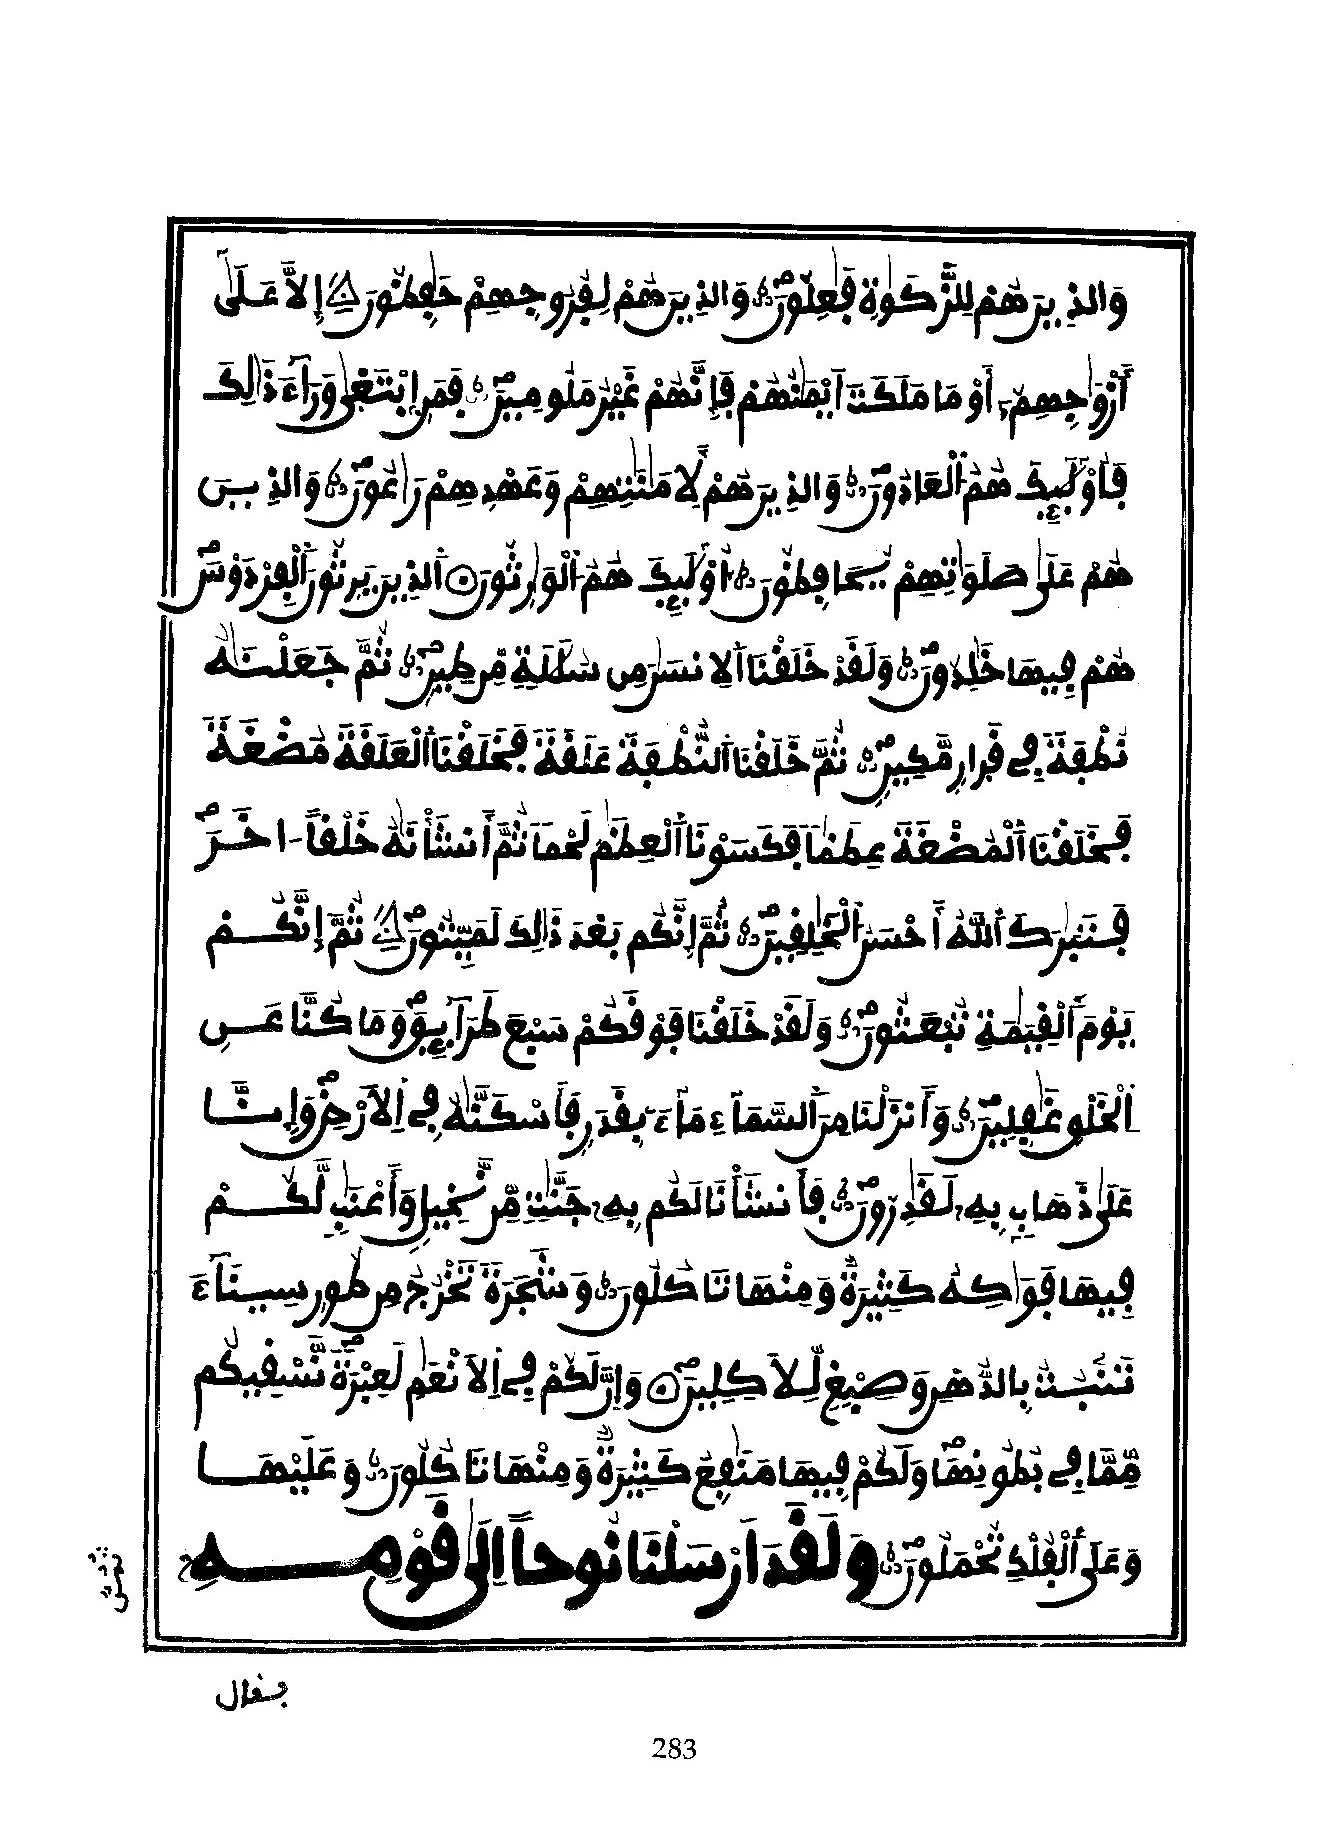 وَالذِينَ هُمْ لِلزَّكَوٰةِ فَٰعِلُونَ وَالذِينَ هُمْ لِفُرُوجِهِمْ حَٰفِظُونَ إِلَّا عَلَىٰ
أَزْوَٰجِهِمُۥ أَوْ مَا مَلَكَتَ اَيْمَٰنُهُمْ فَإِنَّهُمْ غَيْرُ مَلُومِينَ فَمَنِ اِبْتَغَىٰ وَرَآءَ ذَٰلِكَ
فَأُوْلَٰٓئِكَ هُمُ اُلْعَادُونَ وَالذِينَ هُمْ لِأَمَٰنَٰتِهِمْ وَعَهْدِهِمْ رَٰعُونَ وَالذِينَ
هُمْ عَلَىٰ صَلَوَٰتِهِمْ يُحَافِظُونَ أُوْلَٰٓئِكَ هُمُ اُلْوَٰرِثُونَ اَلذِينَ يَرِثُونَ اَلْفِرْدَوْسَ
هُمْ فِيهَا خَٰلِدُونَ وَلَقَدْ خَلَقْنَا اَلِانسَٰنَ مِن سُلَٰلَةٍ مِّن طِينٍ ثُمَّ جَعَلْنَٰهُ
نُطْفَةً فِي قَرَارٍ مَّكِينٍ ثُمَّ خَلَقْنَا اَلنُّطْفَةَ عَلَقَةً فَخَلَقْنَا اَلْعَلَقَةَ مُضْغَةً
فَخَلَقْنَا اَلْمُضْغَةَ عِظَٰماً فَكَسَوْنَا اَلْعِظَٰمَ لَحْماً ثُمَّ أَنشَأْنَٰهُ خَلْقاً اٰخَرَ
فَتَبَٰرَكَ اَللَّهُ أَحْسَنُ اُلْخَٰلِقِينَ ثُمَّ إِنَّكُم بَعْدَ ذَٰلِكَ لَمَيِّتُونَ ثُمَّ إِنَّكُمْ
يَوْمَ اَلْقِيَٰمَةِ تُبْعَثُونَ وَلَقَدْ خَلَقْنَا فَوْقَكُمْ سَبْعَ طَرَآئِقَ وَمَا كُنَّا عَنِ
اِلْخَلْقِ غَٰفِلِينَ وَأَنزَلْنَا مِنَ اَلسَّمَآءِ مَآءً بِقَدَرٍ فَأَسْكَنَّٰهُ فِي اِلَارْضِ وَإِنَّا
عَلَىٰ ذَهَابٍ بِهِۦ لَقَٰدِرُونَ فَأَنشَأْنَا لَكُم بِهِۦ جَنَّٰتٍ مِّن نَّخِيلٍ وَأَعْنَٰبٍ لَّكُمْ
فِيهَا فَوَٰكِهُ كَثِيرَةٌ وَمِنْهَا تَاكُلُونَ وَشَجَرَةً تَخْرُجُ مِن طُورِ سِينَآءَ
تَنۢبُتُ بِالدُّهْنِ وَصِبْغٍ لِّلَاكِلِينَ وَإِنَّ لَكُمْ فِي اِلَانْعَٰمِ لَعِبْرَةً نَّسْقِيكُم
مِّمَّا فِي بُطُونِهَا وَلَكُمْ فِيهَا مَنَٰفِعُ كَثِيرَةٌ وَمِنْهَا تَاكُلُونَ وَعَلَيْهَا
وَعَلَى اَلْفُلْكِ تُحْمَلُونَ وَلَقَدَ اَرْسَلْنَا نُوحاً اِلَىٰ قَوْمِهِۦ
ثمن
فقال
283